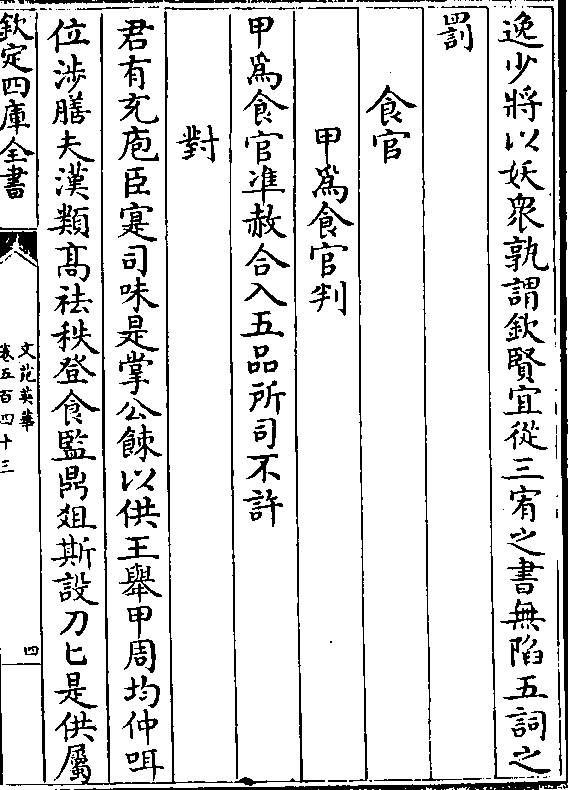 逸少將以妖衆孰謂欽賢宜從三宥之書無陷五詞之
罰
食官
甲爲食官判
甲爲食官准赦合入五品所司不許
對
君有充庖臣寔司味是掌公餗以供王舉甲周均仲咡
位涉膳夫漢類高祛秩登食監鼎爼斯設刀匕是供屬
欽定四庫全書
文苑英華
卷五百四十三
四